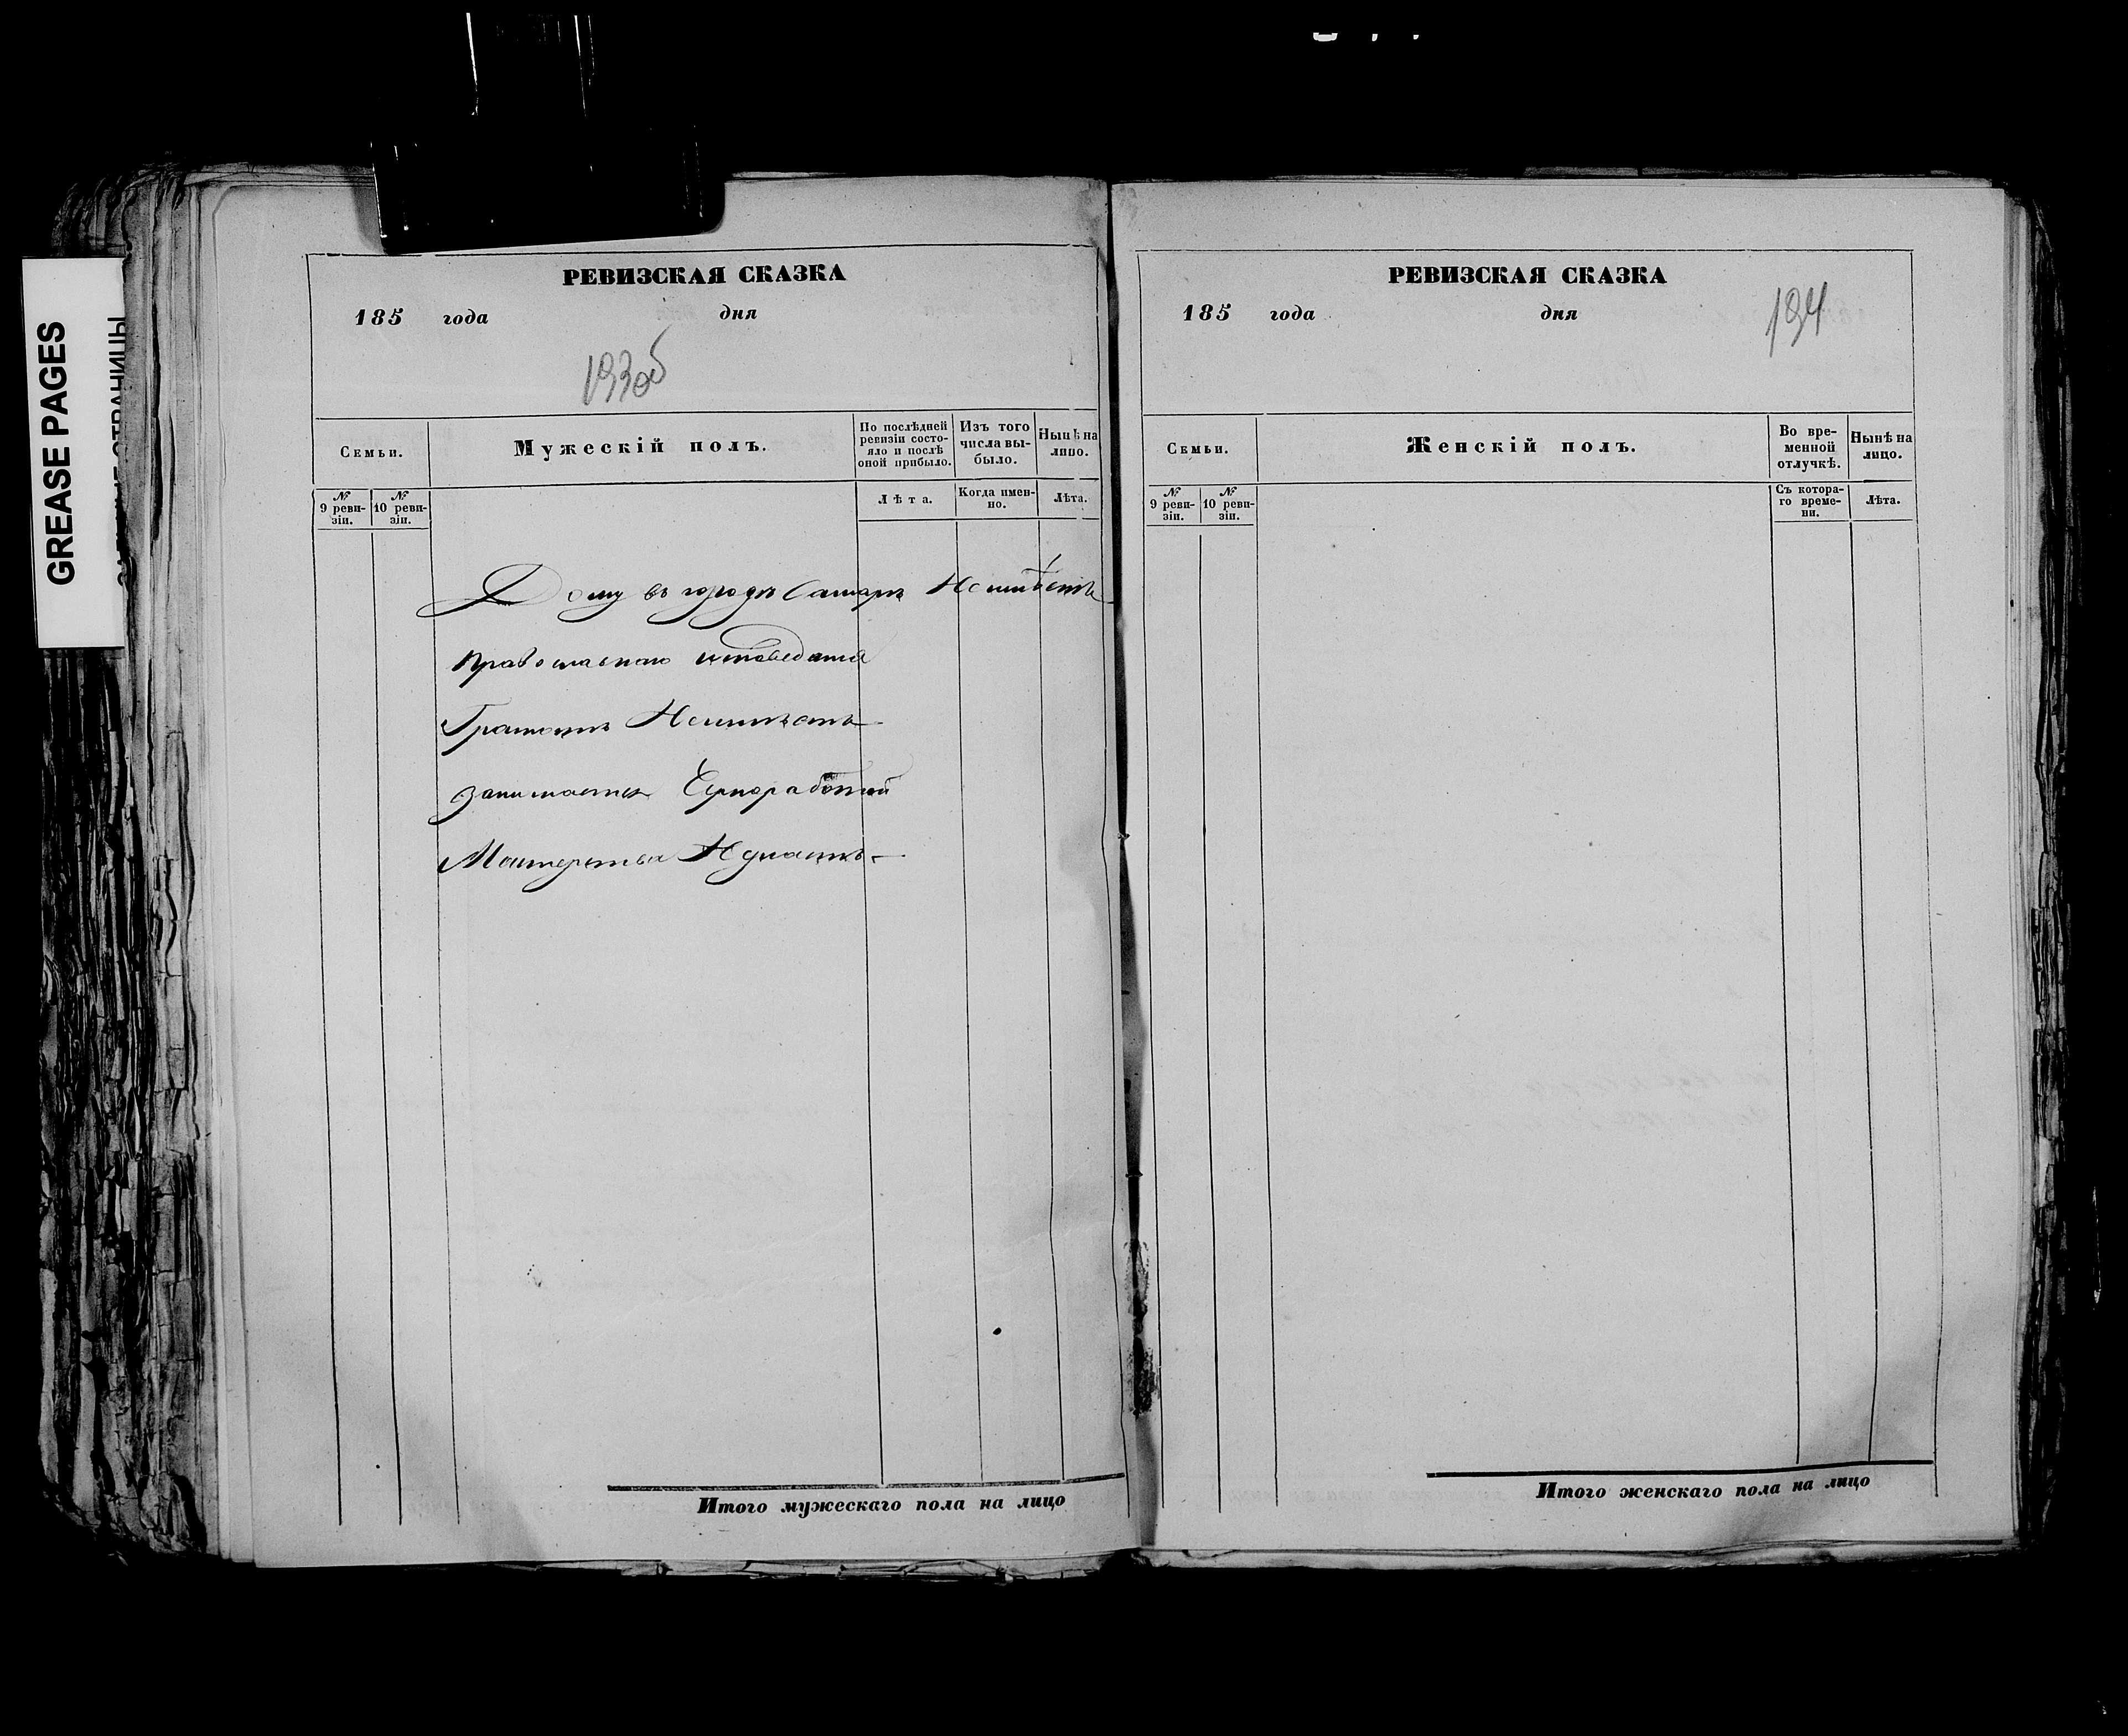 GREASE PAGES
РЕВИЗСКАЯ СКАЗКА
185 года дня
193об
Семьи.
Мужескій полъ.
По послѣдней ревизіи состо-
яло и послѣ
оной прибыло.
Изъ того
числа вы-
было.
Нынѣ на
лицо.
№
9 реви-
зіи.
№
10 реви-
зіи.
Лѣта.
Когда имен-
но.
Лѣта.
Дому въ городѣ Самарѣ Неимѣетъ
православнаго исповеданія
Грамотѣ Неимѣетъ
занимается Черноработой
Мастерства Незнаетъ
Итого мужескаго пола на лицо
РЕВИЗСКАЯ СКАЗКА
185 года дня
194
Семьи.
Женскій полъ.
Во вре-
менной
отлучкѣ.
Нынѣ на
лицо.
№
9 реви-
зіи.
№
10 реви-
зіи.
Съ котора-
го време-
ни.
Лѣта.
Итого женскаго пола на лицо